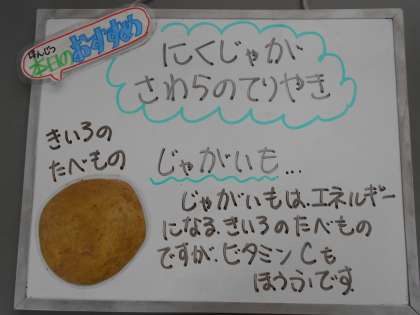 ほんじつ
本日のおすすめ
にくじゃが
さわらのてりやき
きいろの
たべもの
じゃがいも...
じゃがいもは、エネルギー
になる、きいろのたべもの
ですが、ビタミンCも
ほうふです。